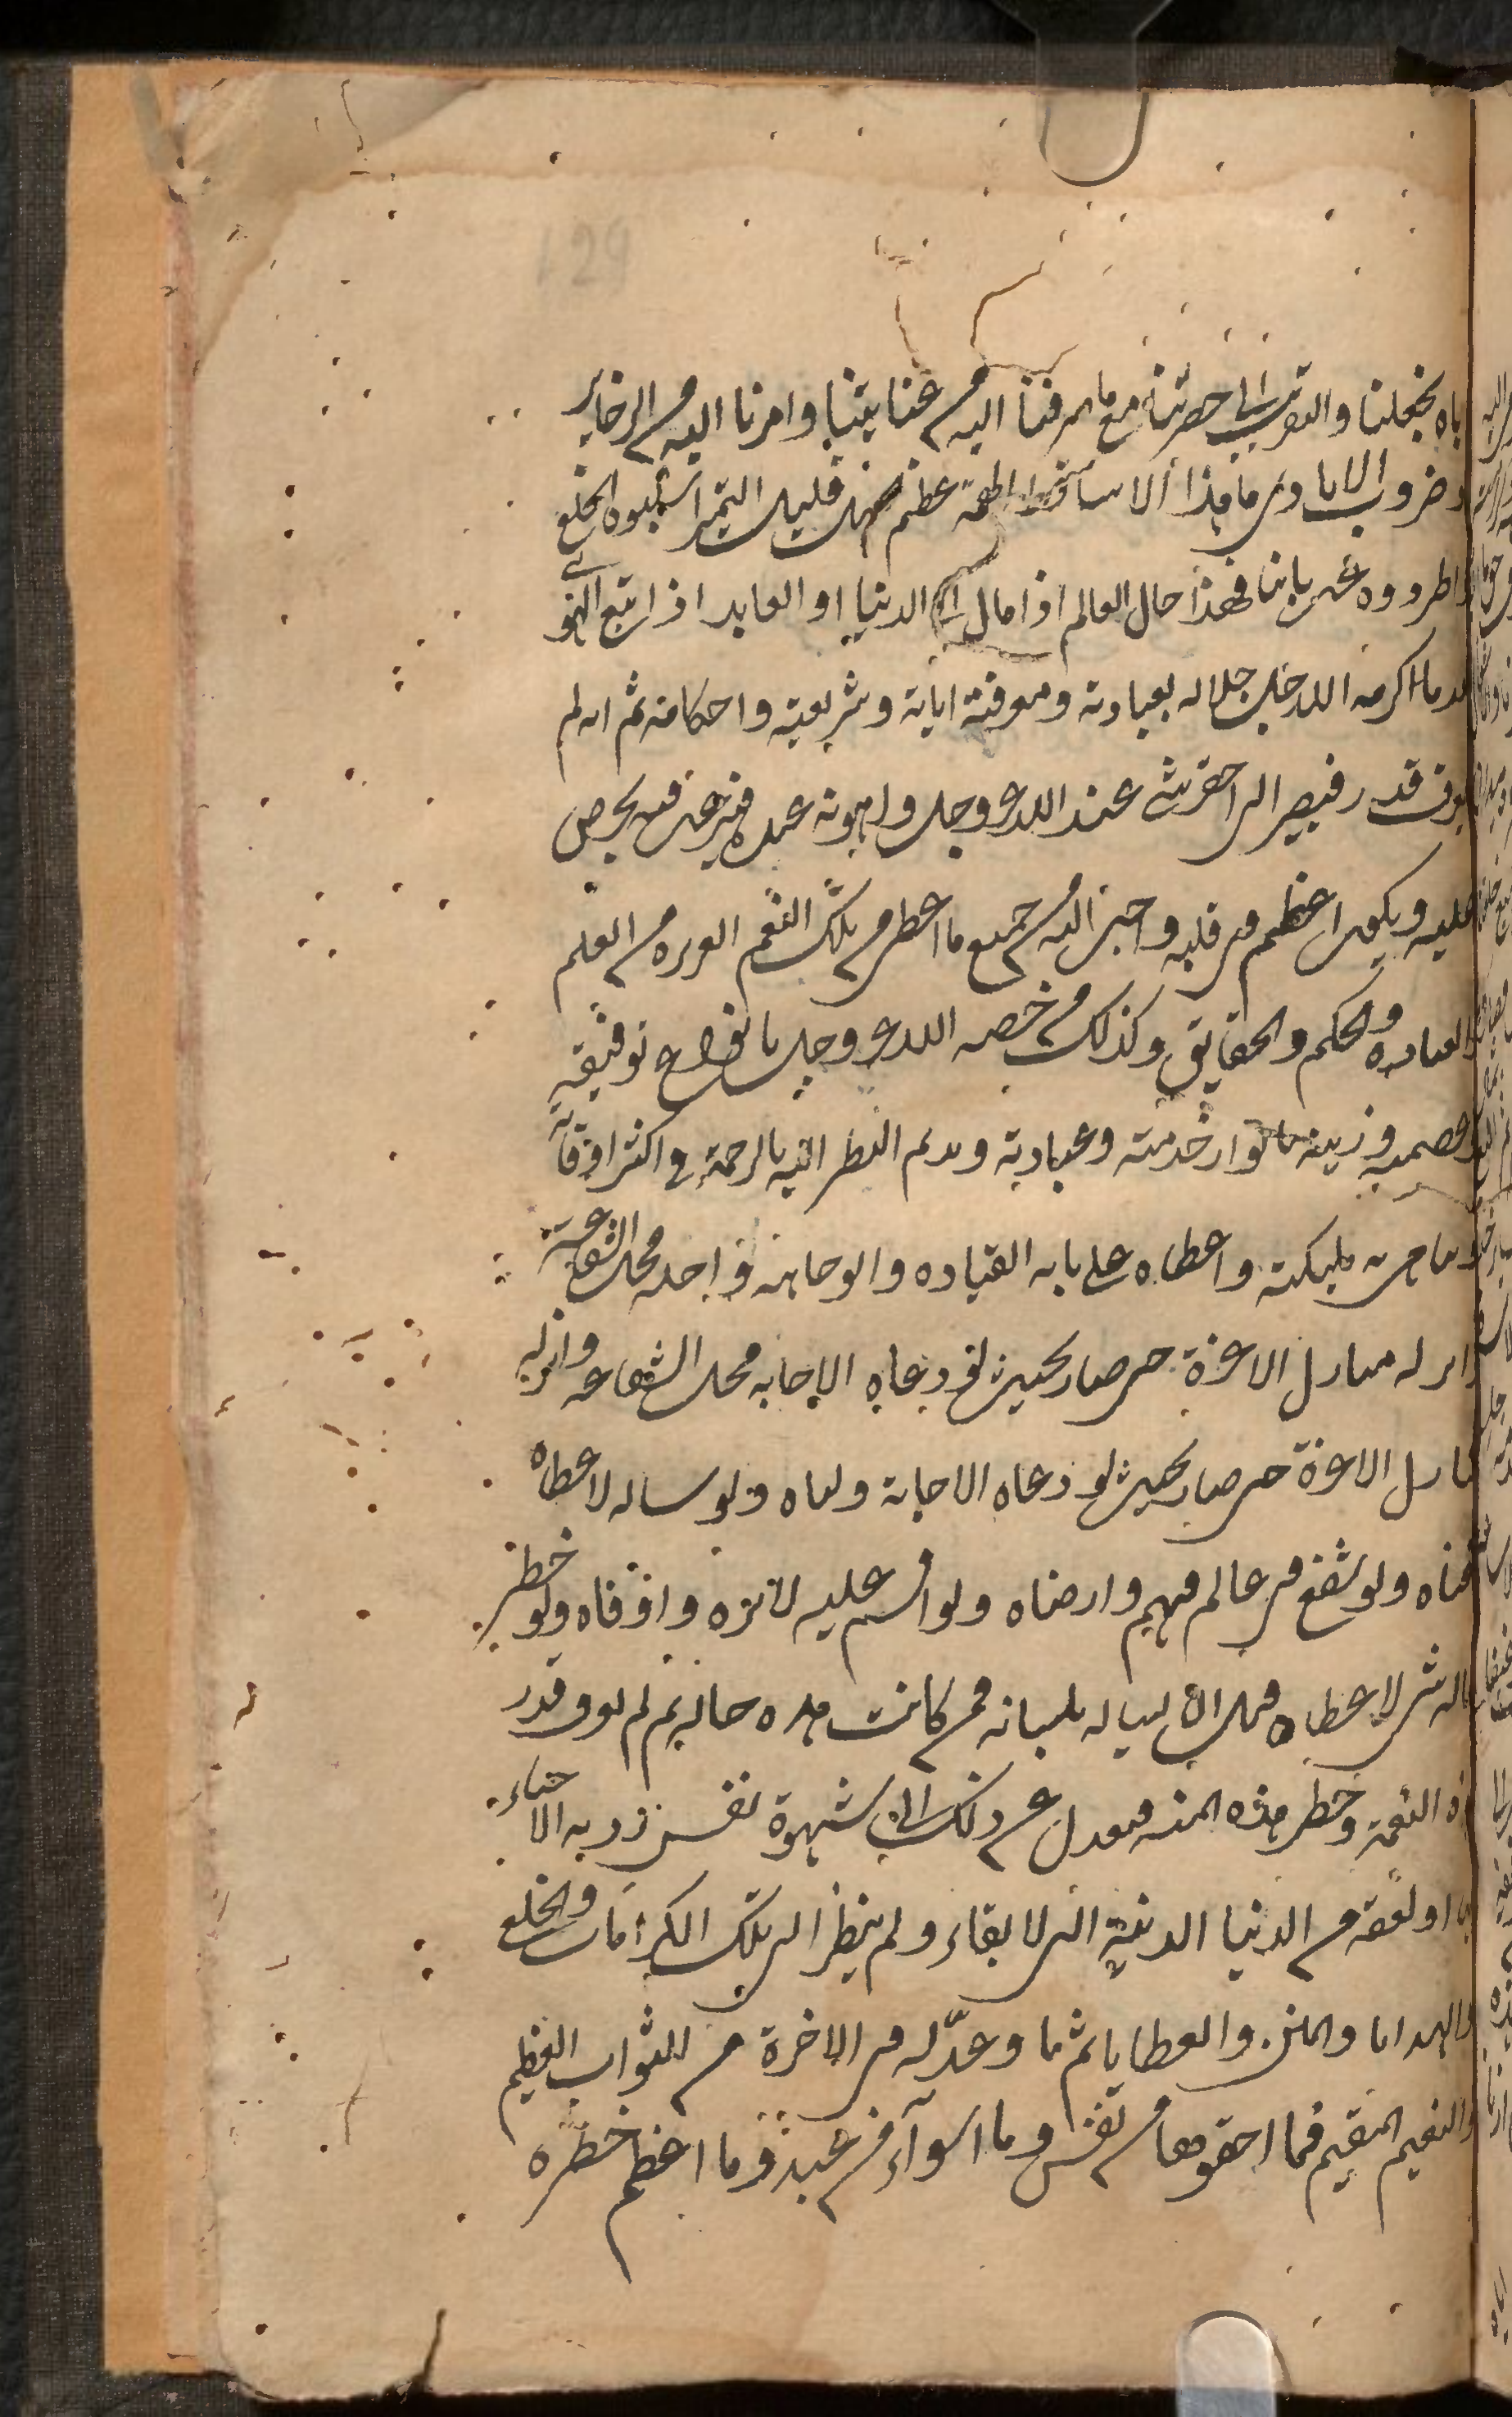 129
اياه بخلعنا والتقرب الى حضرتنا مع ما صرفنا اليه من عنايتنا وامرنا اليه من الذخاير
وضروب الايادى ما هذا الا ساقط الهمة عظيم الجهل قليل التميز اسلبوه الخلع
واطردوه عن بابنا فهذا حال العالم اذا مال الى الدنيا او العابد اذا اتبع الهوى
بعد ما اكرمه الله جل جلاله بعبادته ومعرفة اياته وشريعته واحكامه ثم انه لم
يعرف قدر فيصير الى احقر شى عند الله عز وجل واهونه عنده فيرغب فيه ويحرص
عليه ويكون اعظم فى قلبه واحب اليه من جميع ما اعطى من تلك النعم العزيزة من العلم
والعبادة والحكم والحقايق وكذلك من خصه الله عز وجل بانواع توفيقه
وعصمته وزينه بانوار خدمته وعبادته ويديم النظر اليه بالرحمة فى اكثر اوقاته
ويباهى به مليكته واعطاه على بابه القيادة والوجاهة واحله محل الشفاعة
وانزله منازل الاعزة حتى صار بحيث لو دعاه الاجابه محل الشفاعه وانزله
منازل الاعزة حتى صار بحيث لو دعاه الاجابة ولباه ولو ساله لاعطاه
واغناه ولو شفع فى عالم فيهم وارضاه ولو اقسم عليه لابره واوفاه ولو خطر
بباله شى لاعطاه قبل ان يساله بلسانه فمن كانت هذه حاله ثم لم يعرف قدر
هذه النعمة وخطر هذه المنه فيعدل عن ذلك الى شهوة نفس ردية لا حياء
لها او لعقة من الدنيا الدنية التى لا بقاء ولم ينظر الى تلك الكرامات والخلع
والهدايا والمنن والعطايا ثم ما وعد له فى الاخرة من الثواب العظيم
والنعيم المقيم فما احقرها من نفس وما اسوآء من عبد وما اعظم خطره